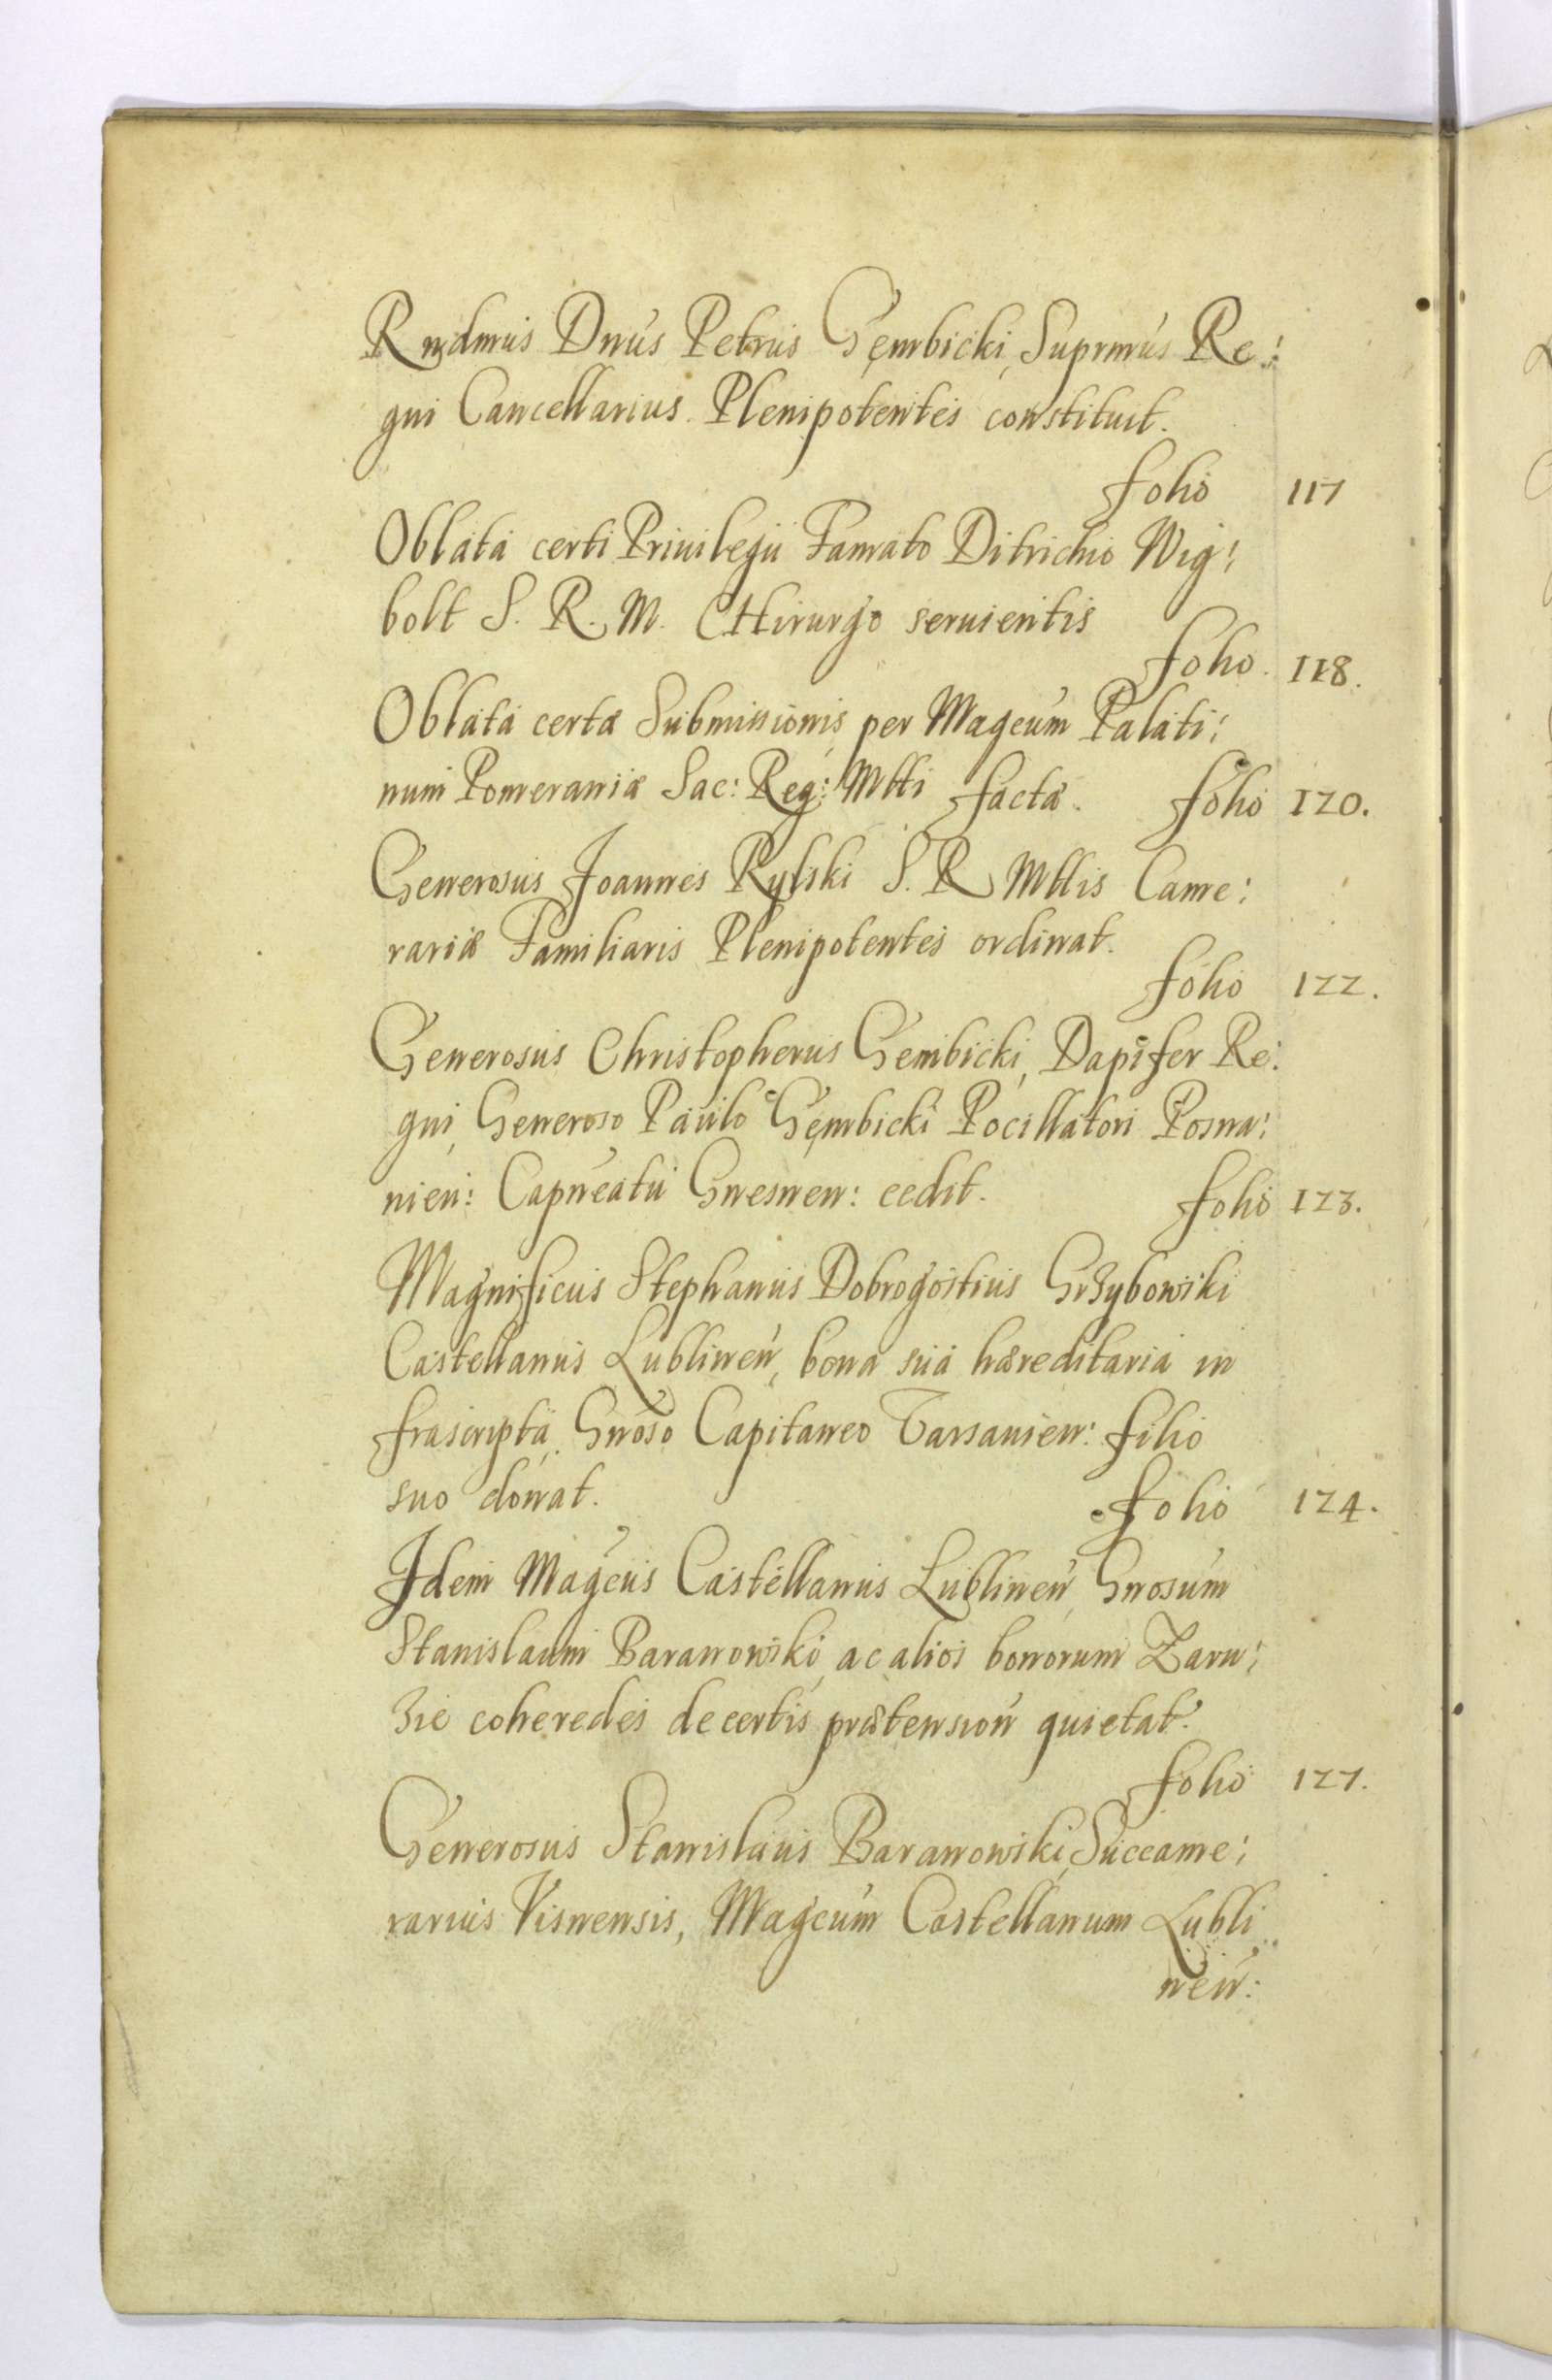 Rndmus Dnus Petrus Gembicki, Supremus Re:
gni Cancellarius Plenipotentes constituit.
folio 117
Oblata certi Priuilegii Famato Ditrichio Wig:
bolt S. R. M. Chirurgo seruientis
folio. 118.
Oblata certæ Submissionis per Magcum Palati:
num Pomeraniæ Sac: Reg: Mtti factæ. folio 120.
Generosus Joannes Rylski S. R Mttis Came:
rariæ Familiaris Plenipotentes ordinat.
folio 122.
Generosus Christopherus Gembicki, Dapifer Re:
gni, Generoso Paulo Gembicki Pocillatori Posna:
nien: Capneatu Gnesnen: cedit. folio 123.
Magnificus Stephanus Dobrogostius Grzybowski
Castellanus Lublinen, bona sua hæreditaria in
frascripta, Gnoso Capitaneo Varsauien: filio
suo donat. folio 124.
Idem Magcus Castellanus Lublinen Gnosum
Stanislaum Baranowski, ac alios bonorum Zaru:
zie coheredes de certis prætension quietat.
folio 127.
Generosus Stanislaus Baranowski, Succame:
rarius Visnensis, Magcum Castellanum Lubli
nen: